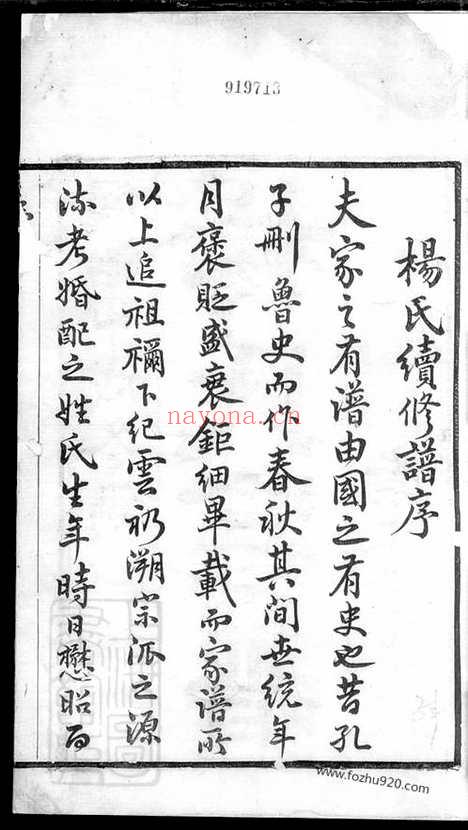 919713
楊氏續修譜序
夫家之有譜由國之有史也昔孔
子刪魯史而作春秋其間世統年
月褒貶盛衰鉅細畢載而家譜所
以上追祖禰下紀雲礽溯宗派之源
流考婚配之姓氏生年時日懋昭百
nayona.cn
www.fozhu920.com